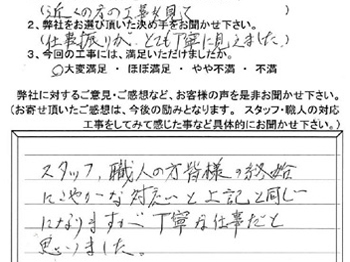 (近くの方の工事を見て)
2、弊社をお選び頂いた決め手をお聞かせ下さい。
(仕事振りが、とても丁寧に見えました。)
3、今回の工事には、満足いただけましたか。
○大変満足 ・ ほぼ満足 ・ やや不満 ・ 不満
弊社に対するご意見・ご感想など、お客様の声を是非お聞かせ下さい。
(お寄せ頂いたご感想は、今後の励みとなります。 スタッフ・職人の対応
工事をしてみて感じた事など具体的にお聞かせ下さい。)
スタッフ、職人の方皆様の終始
にこやかな対応と上記と同じ
になりますが丁寧な仕事だと
思いました。